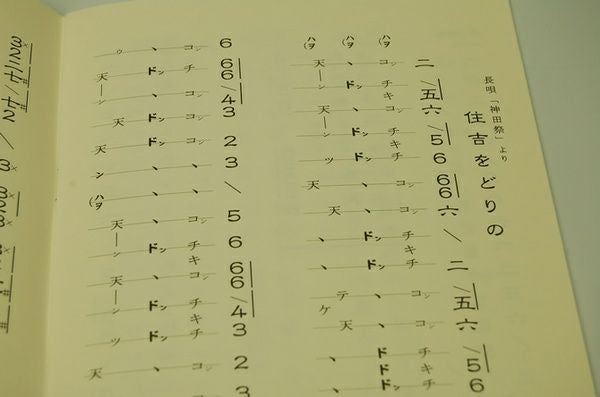 長唄「神田祭」より
住吉をどりの
二 /五 六 /5 6 66 六 \ 二 /五 六 /5 6
(ハヲ) コン チキ コン チキ チ 、 コン チキ チ コン コン チキ チ
(ハヲ) 、 ドン 、 ドン ドン 、 、 ドン ドン 、 、 ド ド ドン
(ハヲ) 天 ー ン 、 天 、 ツ 天 天 、 、 テケ 天 、 、
6 66 /4 3 2 3 \ 5 6 66 /4 3 2 3
コン チ コン コン コン 、 コン チキ コン チキ チ コン
、 ドン 、 ドン ドン 、 、 ドン 、 ドン ドン 、
ゥ 天 ー ン 天 天 ン (ハヲ) 天 ー ン 天 ー ン ツ 天